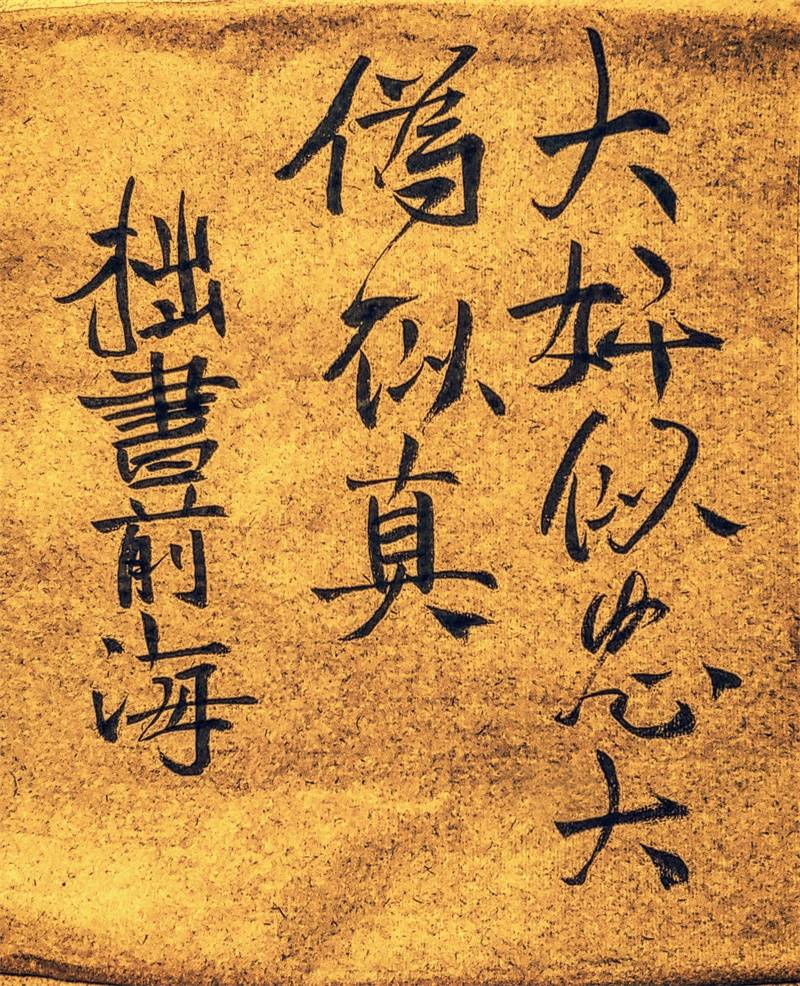 大奸似忠大
偽似真
拙書前海